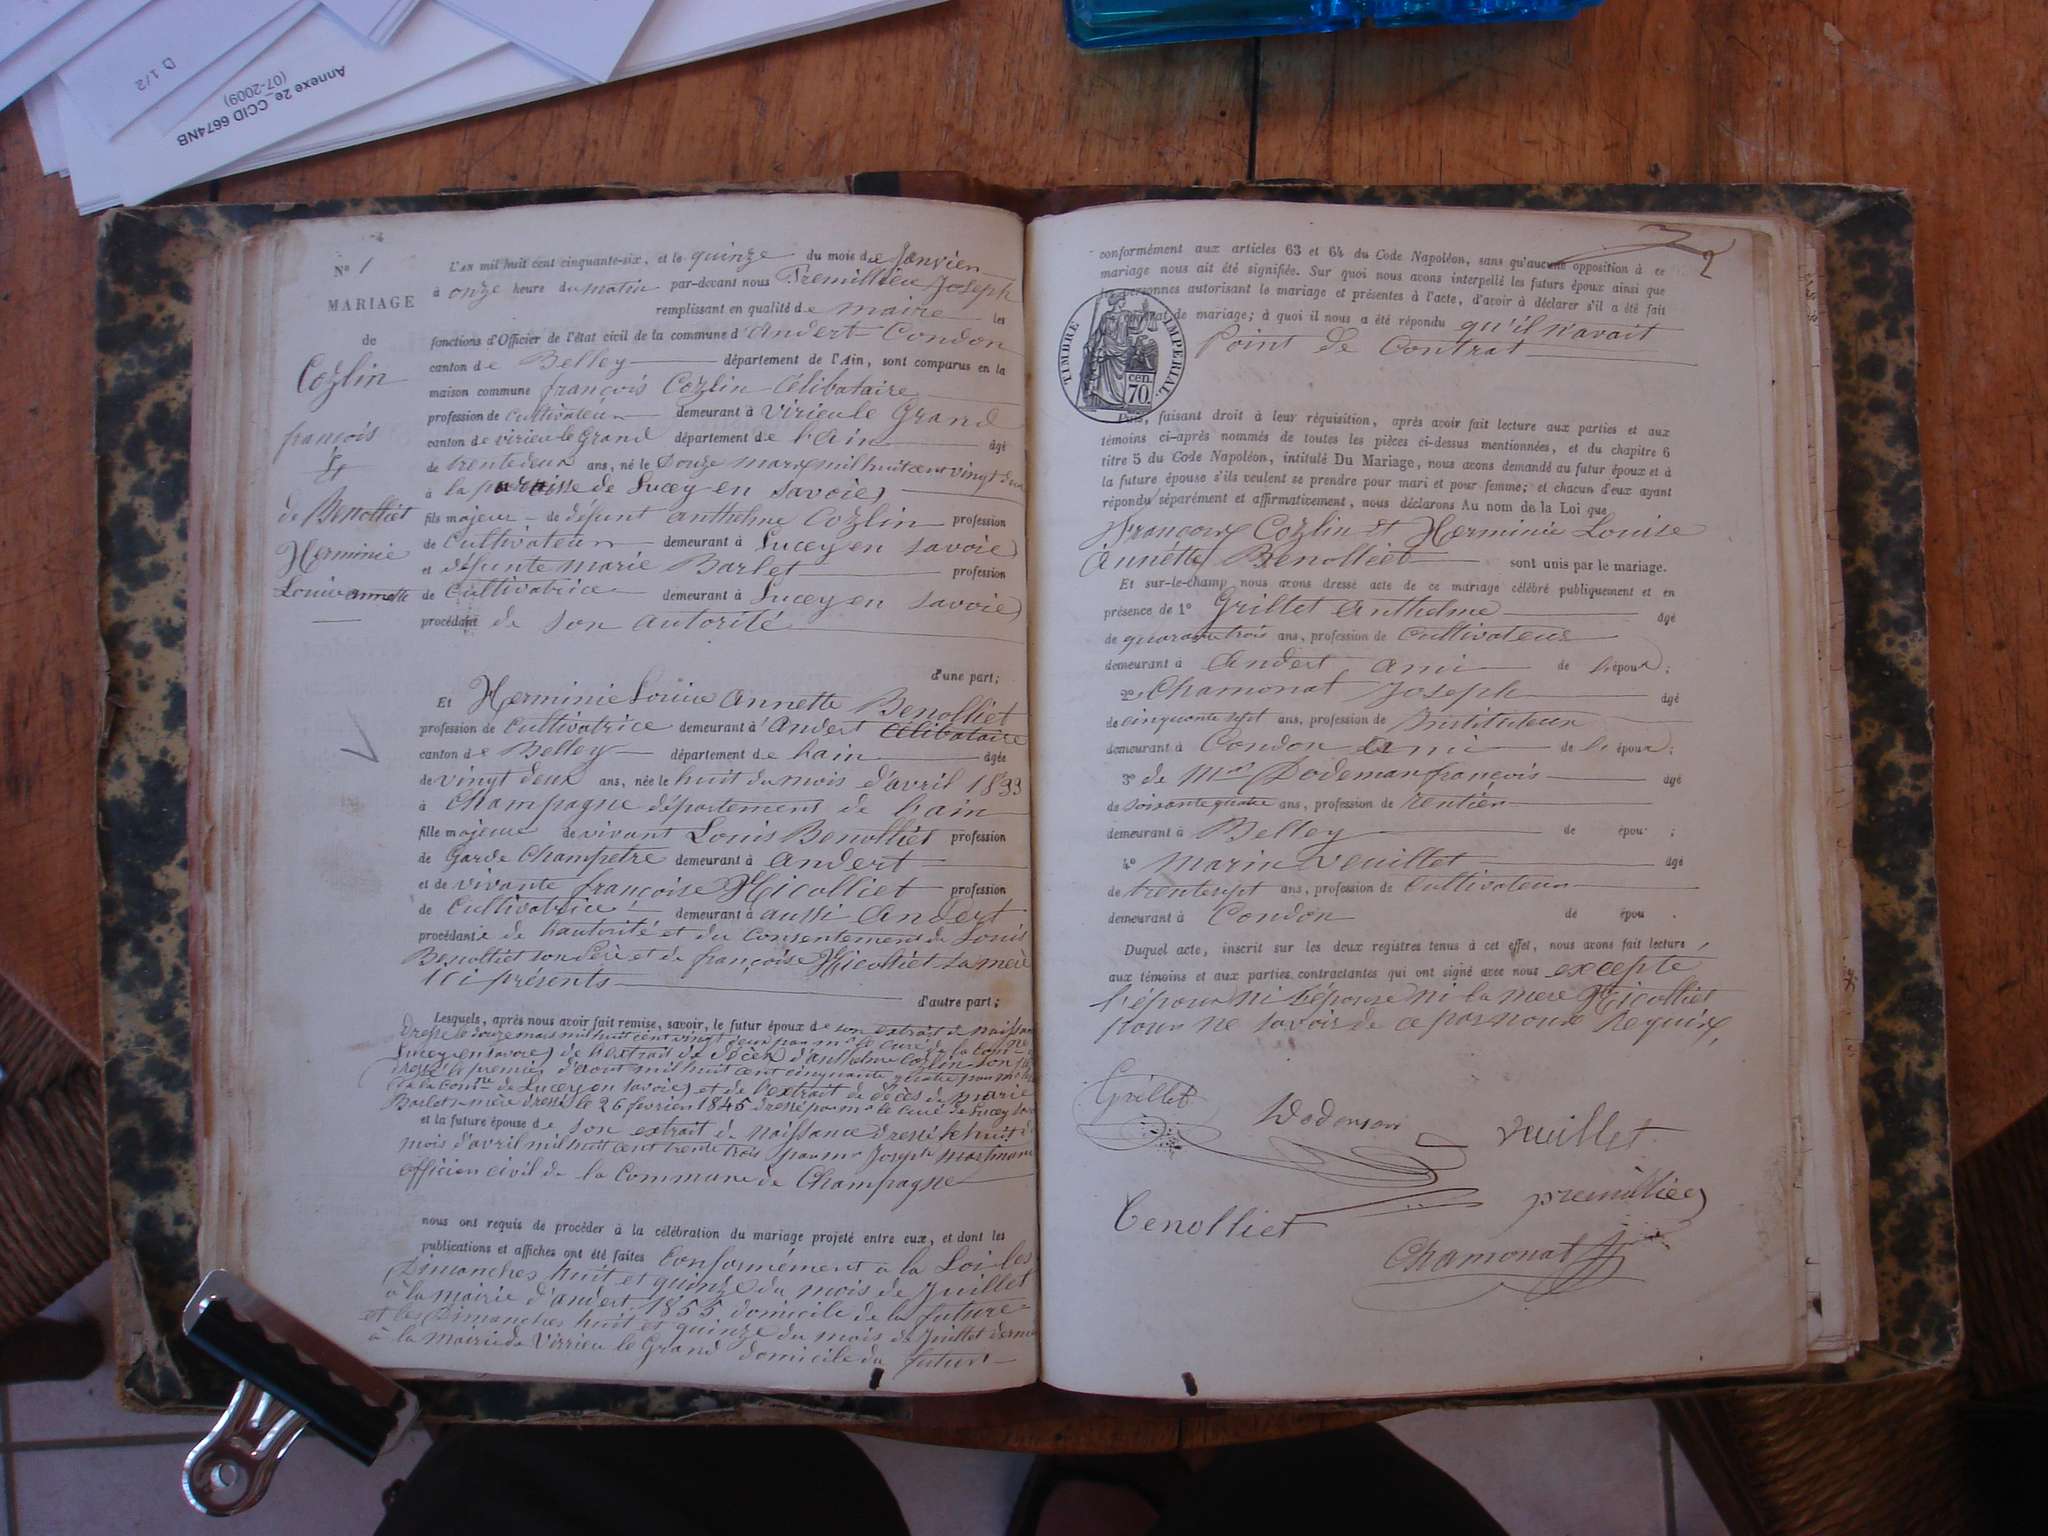 D 1/2
Annexe 2e_CCID 6674NB
(07-2009)
N° 1
MARIAGE
de
Cozlin
françois
Et
de Benolliet
Herminie
Louise annette
L'AN mil huit cent cinquante-six, et le quinze du mois de Janvier
à onze heure du matin par-devant nous Premillieu Joseph
remplissant en qualité de maire les
fonctions d'Officier de l'état civil de la commune d'Andert Condon
canton de Belley département de l'Ain, sont comparus en la
maison commune françois Cozlin Célibataire
profession de cultivateur demeurant à Virieu le Grand
canton de virieu le Grand département de l'ain âgé
de trente deux ans, né le Douze mars mil huit cent vingt deux
à la paroisse de Lucey en Savoie
fils majeur de défunt anthelme Cozlin profession
de Cultivateur demeurant à Lucey en Savoie
et défunte marie Barlet profession
de Cultivatrice demeurant à Lucey en Savoie
procédant de son autorité
d'une part;
Et Herminie Louise Annette Benolliet
profession de cultivatrice demeurant à Andert Célibataire
canton de Belley département de l'ain âgée
de vingt deux ans, née le huit du mois d'avril 1833
à Champagne département de l'ain
fille majeure de vivant Louis Benolliet profession
de Garde Champetre demeurant à Andert
et de vivante françoise Hicolliet profession
de Cultivatrice demeurant à aussi Andert
procédante de l'autorité et du Consentement de Louis
Benolliet son Père et de françoise Hicolliet sa mère
ici présents
d'autre part;
Lesquels, après nous avoir fait remise, savoir, le futur époux de son extrait de naissance
dressé le douze mars mil huit cent vingt deux par mr le curé de la Comne
Lucey en savoie) de l'extrait de décès d'anthelme Cozlin son père
dressé le premier d'aout mil huit cent cinquante quatre par mr le
de la Comne de Lucey en savoie) et de l'extrait de décès de marie
Barlet sa mère dressé le 26 fevrier 1845 dressé par mr le curé de Lucey
et la future épouse de son extrait de naissance dressé le huit du
mois d'avril mil huit cent trente trois par mr Joseph
officier civil de la Commune de Champagne
nous ont requis de procéder à la célébration du mariage projeté entre eux, et dont les
publications et affiches ont été faites Conformément à la Loi les
Dimanches huit et quinze du mois de Juillet
à la mairie d'andert 1855 domicile de la future
et les Dimanches huit et quinze du mois de Juillet dernier
à la mairie de Virrieu le Grand domicile du futur
2
conformément aux articles 63 et 64 du Code Napoléon, sans qu'aucune opposition à ce
mariage nous ait été signifiée. Sur quoi nous avons interpellé les futurs époux ainsi que
les personnes autorisant le mariage et présentes à l'acte, d'avoir à déclarer s'il a été fait
contrat de mariage; à quoi il nous a été répondu qu'il n'avait
Point de Contrat
TIMBRE IMPERIAL
70 cen.
Puis, faisant droit à leur réquisition, après avoir fait lecture aux parties et aux
témoins ci-après nommés de toutes les pièces ci-dessus mentionnées, et du chapitre 6
titre 5 du Code Napoléon, intitulé Du Mariage, nous avons demandé au futur époux et à
la future épouse s'ils veulent se prendre pour mari et pour femme; et chacun d'eux ayant
répondu séparément et affirmativement, nous déclarons Au nom de la Loi que
françois Cozlin Et Herminie Louise
Annette Benolliet sont unis par le mariage.
Et sur-le-champ nous avons dressé acte de ce mariage célébré publiquement et en
présence de 1° Grillet Anthelme âgé
de quarante trois ans, profession de Cultivateur
demeurant à Andert ami de l'époux;
2° Chamonat Joseph âgé
de cinquante sept ans, profession de Instituteur
demeurant à Condon Ami de l'époux;
3° de Mr Dodeman françois âgé
de soisante quatre ans, profession de rentier
demeurant à Belley de épou ;
4° Marin Veuillet âgé
de trente sept ans, profession de Cultivateur
demeurant à Condon de épou .
Duquel acte, inscrit sur les deux registres tenus à cet effet, nous avons fait lecture
aux témoins et aux parties contractantes qui ont signé avec nous excepté
l'époux ni l'épouse ni la mere Hicolliet
pour ne savoir de ce par nous Requix,
Grillet
Dodeman
Vuillet
Benolliet
premillieu
Chamonat